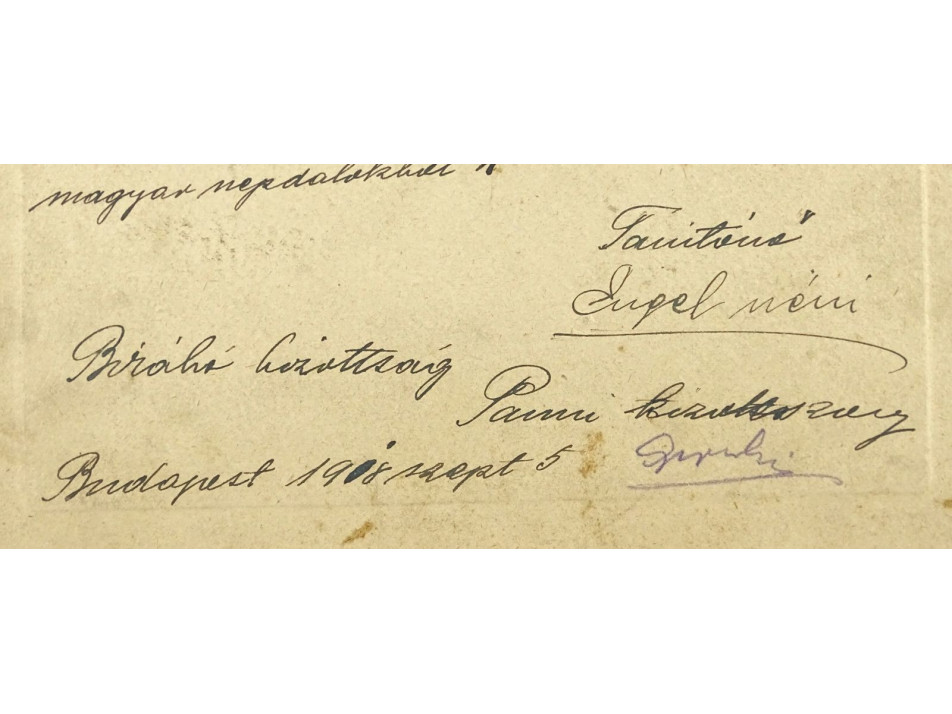 magyar nepdalokból
Tanitónő
Engel néni
Biráló bizottság
Panni
Budapest 1918 szept 5